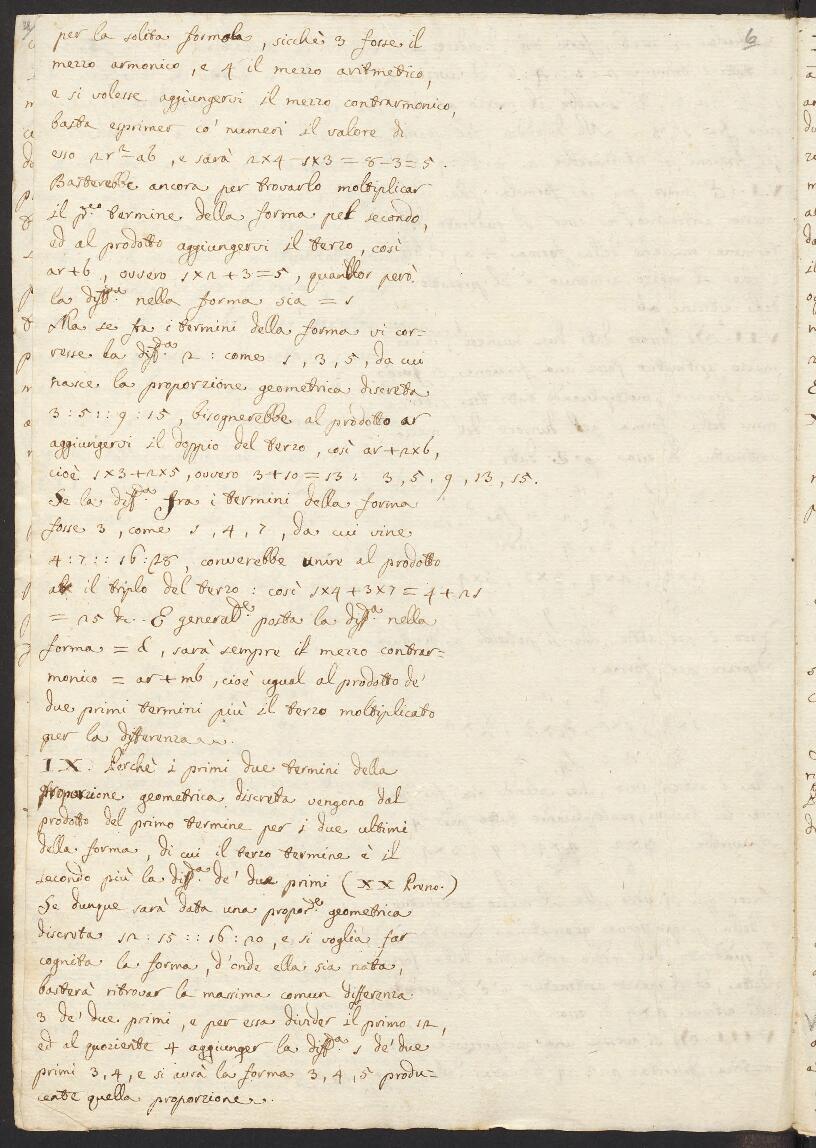 6
per la solita formola, sicchè 3 fosse il
mezzo armonico, e 4 il mezzo aritmetico,
e si volesse aggiungervi il mezzo contrarmonico,
basta esprimer co' numeri il valore di
esso 2r²-ab, e sarà 2×4-1×3=8-3=5.
Basterebbe ancora per trovarlo moltiplicar
il p.º termine della forma pel secondo,
ed al prodotto aggiungervi il terzo, così
ar+b, ovvero 1×2+3=5, quallor però
la diff.ª nella forma sia = 1
Ma se fra i termini della forma vi cor-
resse la diff.ª 2: come 1, 3, 5, da cui
nasce la proporzione geometrica discreta
3:5::9:15, bisognerebbe al prodotto ar
aggiungervi il doppio del terzo, così ar+2×b,
cioè 1×3+2×5, ovvero 3+10=13. 3, 5, 9, 13, 15.
Se la diff.ª fra i termini della forma
fosse 3, come 1, 4, 7, da cui vine
4:7::16:28, converebbe unire al prodotto
il triplo del terzo: così 1×4+3×7=4+21
=25 &c. E general.te posta la diff.ª nella
forma = d, sarà sempre il mezzo contrar-
monico = ar+mb, cioè ugual al prodotto de'
due primi termini più il terzo moltiplicato
per la differenza
IX. Perchè i primi due termini della
proporzione geometrica discreta vengono dal
prodotto del primo termine per i due ultimi
della forma, di cui il terzo termine è il
secondo più la diff.ª de' due primi (XX Preno.)
Se dunque sarà data una propor.e geometrica
discreta 12:15::16:20, e si voglia far
cognita la forma, d'onde ella sia nata,
basterà ritrovar la massima comun differenza
3 de' due primi, e per essa divider il primo 12,
ed al quoziente 4 aggiunger la diff.ª 1 de' due
primi 3, 4, e si avrà la forma 3, 4, 5 produ-
cente quella proporzione.